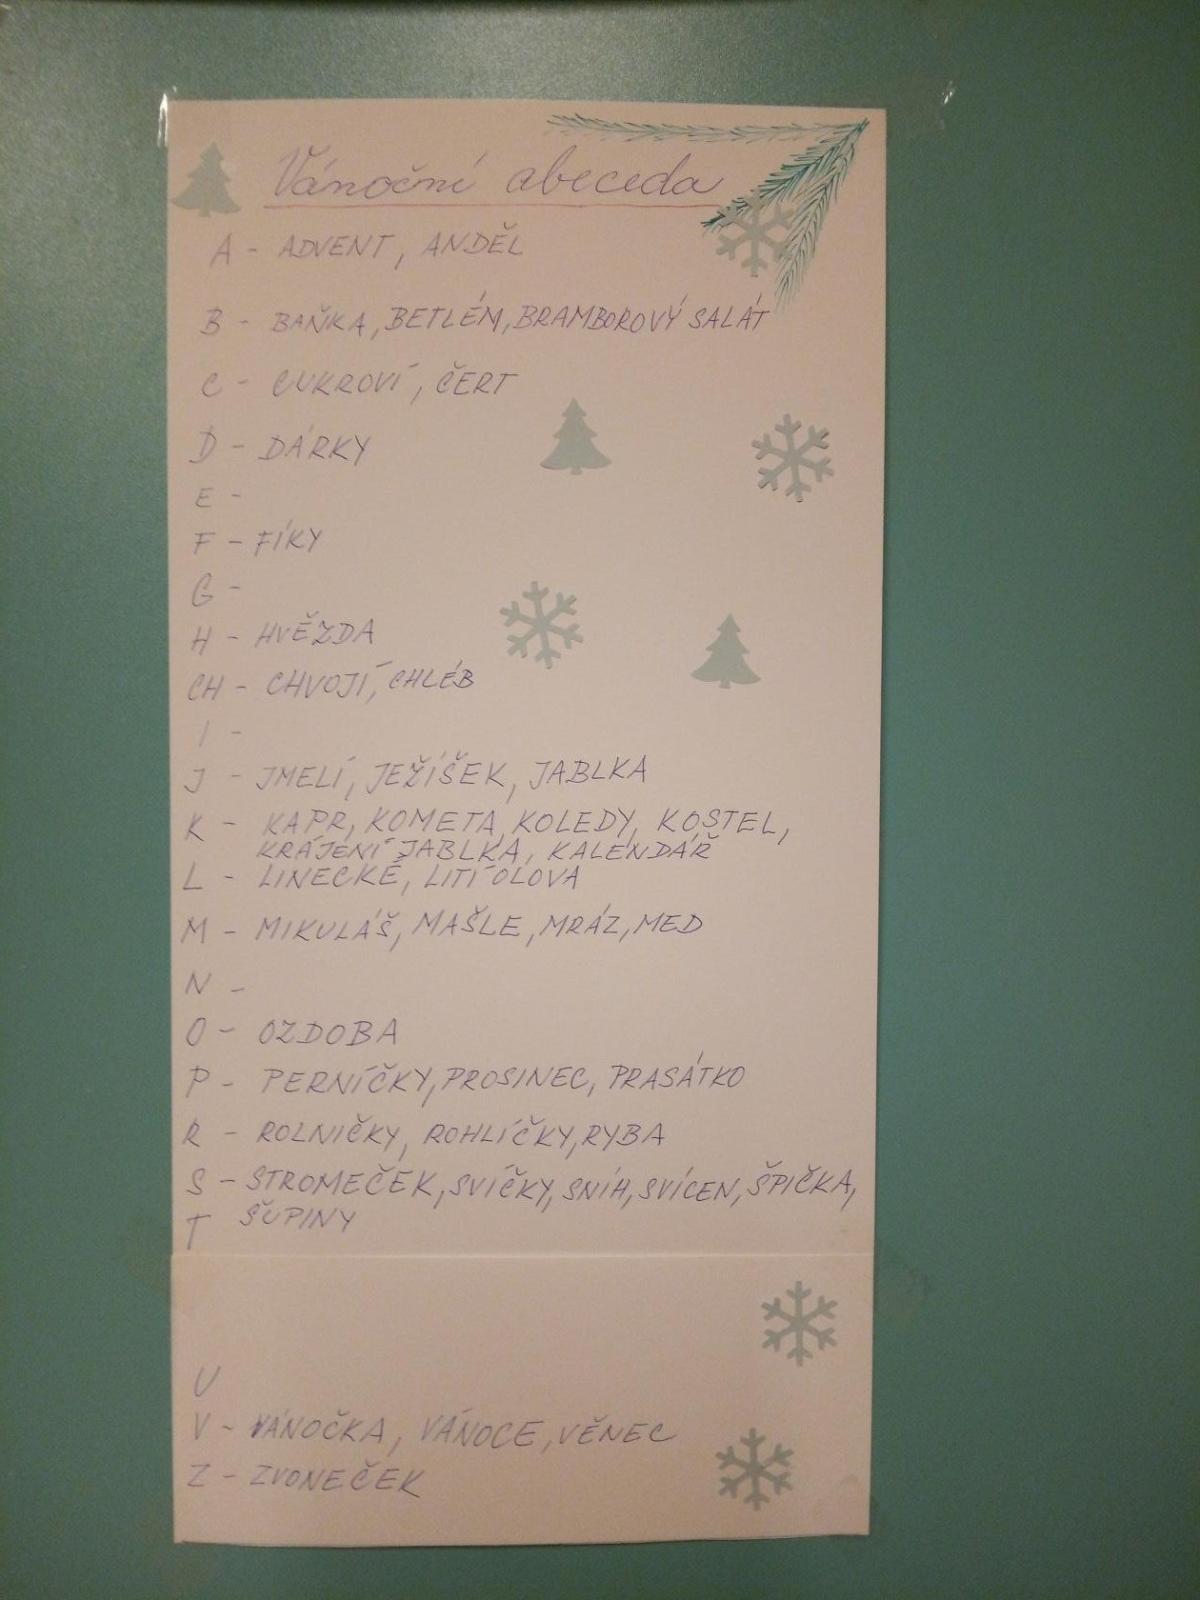 Vánoční abeceda
A - ADVENT, ANDĚL
B - BAŇKA, BETLÉM, BRAMBOROVÝ SALÁT
C - CUKROVÍ, ČERT
D - DÁRKY
E -
F - FÍKY
G -
H - HVĚZDA
CH - CHVOJÍ, CHLÉB
I -
J - JMELÍ, JEŽÍŠEK, JABLKA
K - KAPR, KOMETA, KOLEDY, KOSTEL,
KRÁJENÍ JABLKA, KALENDÁŘ
L - LINECKÉ, LITÍ OLOVA
M - MIKULÁŠ, MAŠLE, MRÁZ, MED
N -
O - OZDOBA
P - PERNÍČKY, PROSINEC, PRASÁTKO
R - ROLNIČKY, ROHLÍČKY, RYBA
S - STROMEČEK, SVÍČKY, SNÍH, SVÍCEN, ŠPIČKA,
ŠUPINY
T
U
V - VÁNOČKA, VÁNOCE, VĚNEC
Z - ZVONEČEK